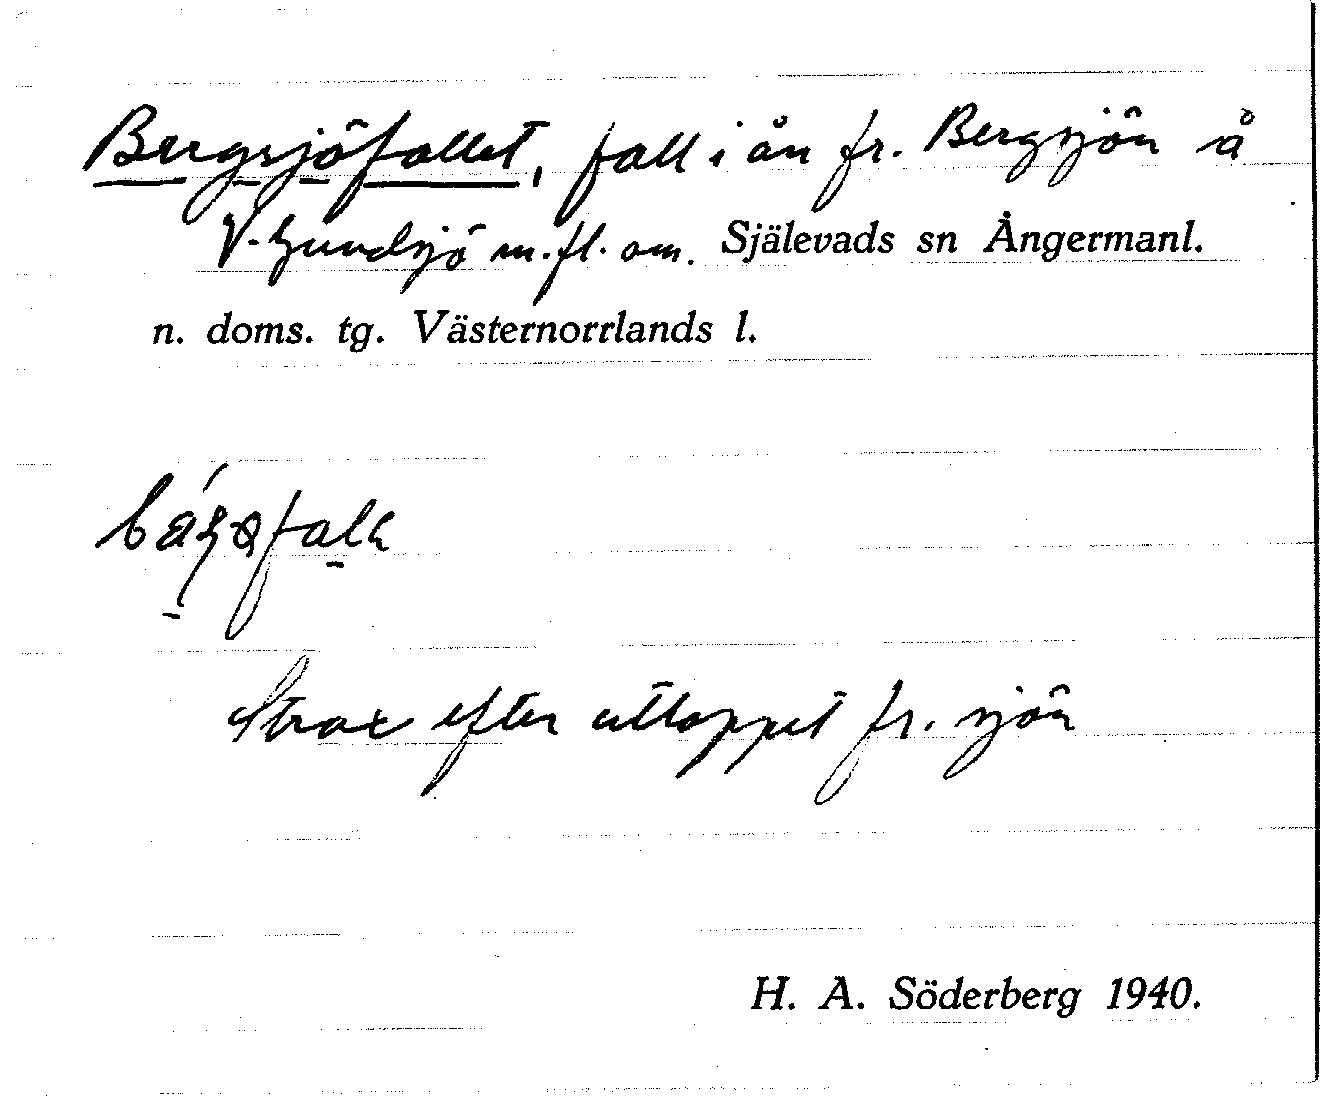 Bergsjöfallet, fall i ån fr. Bergsjön å
V. Gundsjö m.fl. om. Själevads sn Ångermanl.
n. doms. tg. Västernorrlands l.
Strax efter utloppet fr. sjön
H. A. Söderberg 1940.